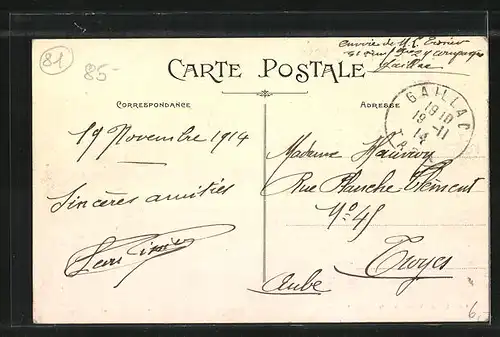 81
85-
envoi de M. L.
Gaillac
CARTE POSTALE
CORRESPONDANCE
ADRESSE
GAILLAC
1910
19-11
14
TARN
19 Novembre 1914
Sincères amitiés
Madame
Rue Planche Clément
No 45
Troyes
Aube
6,-